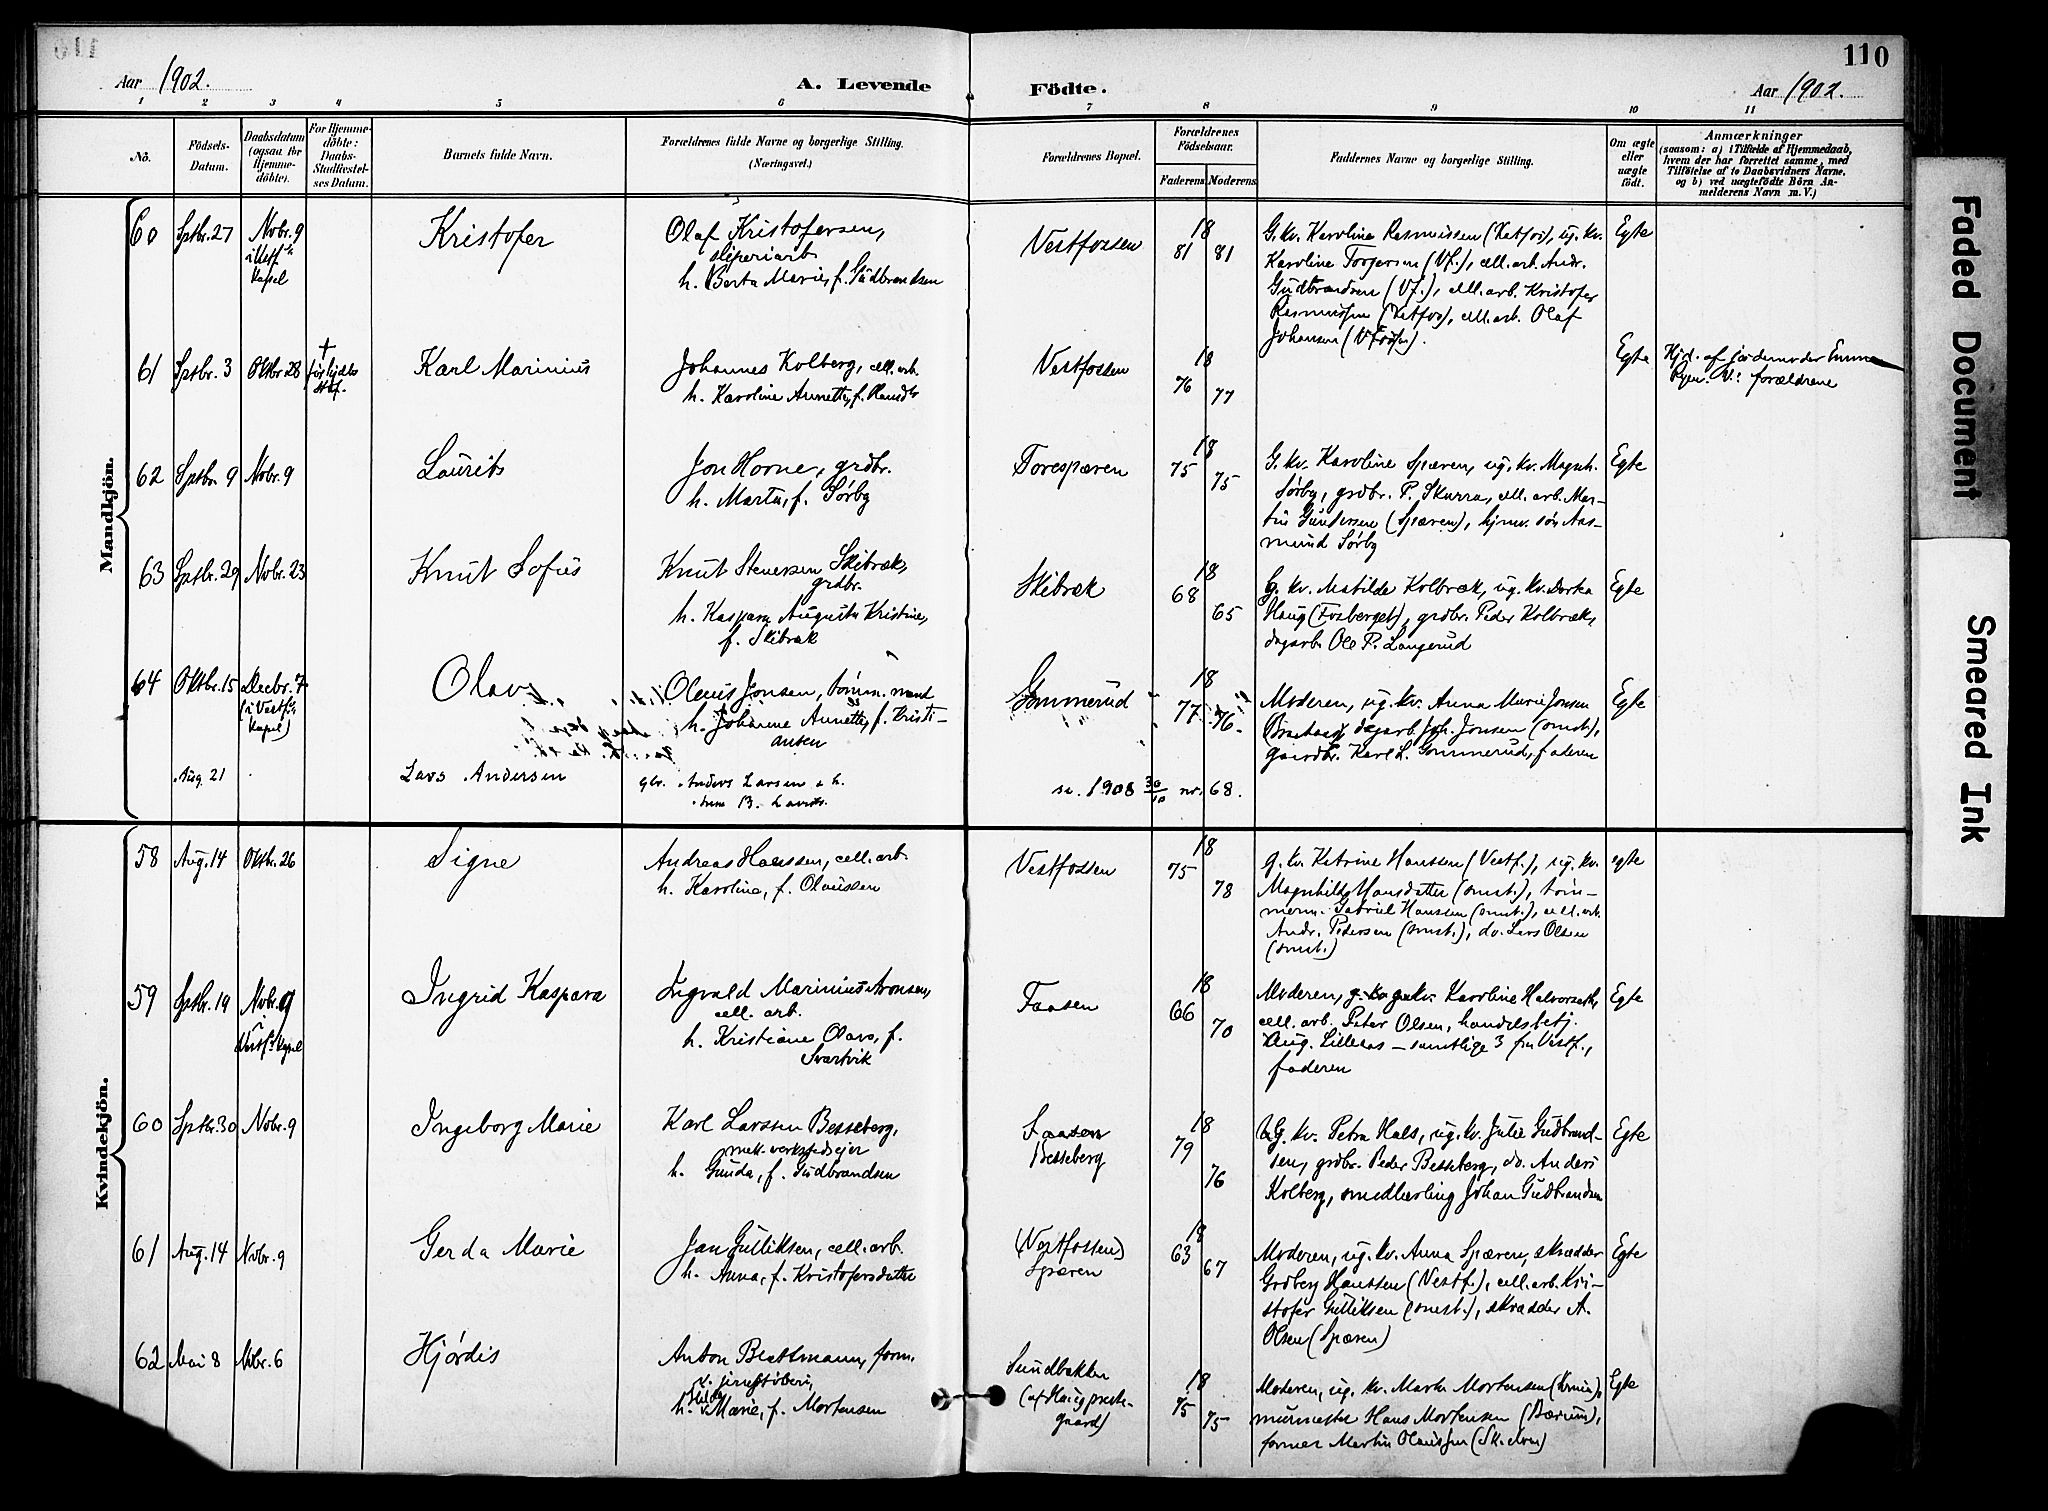 110
Aar 1902.
A. Levende Födte.
Aar 1902.
1 2 3 4 5 6 7 8 9 10 11
No.
Födsels-Datum.
Daabsdatum (ogsaa for Hjemme-döbte).
For Hjemme-döbte: Daabs-Stadfæstel-ses Datum.
Barnets fulde Navn.
Forældrenes fulde Navne og borgerlige Stilling.
(Næringsvei.)
Forældrenes Bopæl.
Forældrenes Födselsaar.
Faderens Moderens
Faddernes Navne og borgerlige Stilling.
Om ægte eller uægte födt.
Anmærkninger
(saasom: a) i Tilfælde af Hjemmedaab,
hvem der har forrettet samme, med
Tilföielse af to Daabsvidners Navne,
og b) ved uægtefödte Börn An-
melderens Navn m. V.)
Mandkjön.
60 Sptbr. 27 Novbr. 9 i Vestf. kapel
Kristofer
Olaf Kristofersen,
sliperiarb.
h. Berta Marie, f. Gudbrandsen
Vestfossen
18 81 81
G. kv. Karoline Rasmussen (Hatfos), ug. kv.
Karoline Torgersen (Vf.), cell. arb. Andr.
Gudbrandsen (Vf.), cell. arb. Kristofer
Rasmussen (Hatfos), cell. arb. Olaf
Johansen (Vfoss).
Egte
61 Sptbr. 3 Oktbr 28 †
Karl Marinius
Johannes Kolberg, cell. arb.
h. Karoline Annette, f.
Vestfossen
18 76 77
Egte
Hjd. af jordemoder Emma
Ryen. V.: forældrene
62 Sptbr. 9 Novbr. 9
Laurits
Jon Horne, grdbr.
h. Marta, f. Sørby
Toresparen
18 75 75
G. kv. Karoline Spæren, ug. kv. Magnh.
Sørby, grdbr. P. Skurra, cell. arb. Mar-
tin Gundersen (Spæren), hjmv. søn Aas-
mund Sørby
Egte
63 Sptbr. 29 Novbr. 23
Knut Sofus
Knut Stenersen Skibræk,
grdbr.
h. Kaspara Augusta Kristine,
f. Skibræk
Skibræk
18 68 65
G. kv. Matilde Kolbræk, ug. kv. Dorka
Haug (Fosberget), grdbr. Peder Kolbræk,
dagarb. Ole P. Langerud
Egte
64 Oktbr. 15 Decbr. 7 (i Vestf. kapel)
Olav
Olaus Jonsen, tømm. mand
h. Johanne Annette, f. Kristi-
ansen
Gommerud
18 77 76
Moderen, ug. kv. Anna Marie Jonsen
dagarb. Joh. Jonsen (smst.),
gaardbr. Karl L. Gommerud, faderen
Egte
Aug. 21
Lars Andersen
gbr. Anders Larsen o h.
B. Larsd.
se 1908 30/10 nr. 68.
Kvindekjön.
58 Aug. 14 Oktbr. 26
Signe
Andreas Hanssen, cell. arb.
h. Karoline, f. Olaussen
Vestfossen
18 75 78
g. kv. Katrine Hanssen (Vestf.), ug. kv.
Magnhild Hansdatter (smst.), tøm-
merm. Gabriel Hanssen (smst.), cell. arb.
Andr. Pedersen (smst.), do. Lars Olsen
(smst.)
egte
59 Sptbr. 19 Novbr. 9 i Vestf. kapel
Ingrid Kaspara
Ingvald Marinius Aronsen,
cell. arb.
h. Kristiane Olava, f.
Svartvik
Faasen
18 66 70
Moderen, g. kv. Karoline
cell. arb. Peter Olsen, handelsbetj.
Aug. Lilleaas – samtlige 3 fra Vestf.,
faderen
Egte
60 Sptbr. 30 Novbr. 9
Ingeborg Marie
Karl Larssen Besseberg,
mek. verkstedsejer
h. Gunda, f. Gudbrandsen
Faasen
Besseberg
18 79 76
G. kv. Petra Hals, ug. kv. Julie Gudbrand-
sen, grdbr. Peder Besseberg, do. Anders
Kolberg, smedlærling Johan Gudbrandsen
Egte
61 Aug. 14 Novbr. 9
Gerda Marie
Jan Gulliksen, cell. arb.
h. Anna, f. Kristofersdatter
(Vestfossen)
Spæren
18 63 67
Moderen, ug. kv. Anna Spæren, skrædder
Gudberg Hanssen (Vestf.), cell. arb. Kri-
stofer Gulliksen (smst.), skrædder A.
Olsen (Spæren)
Egte
62 Mai 8 Novbr. 6
Hjørdis
Anton Brettmann, form.
v. jernstøberi,
h. Hilda Marie, f. Mortensen
Sundbakken
(af Haug præste-
gaard)
18 75 75
Moderen, ug. kv. Marta Mortensen
murmester Hans Mortensen (Bærum),
former Martin Olaussen
Egte
Faded Document
Smeared Ink